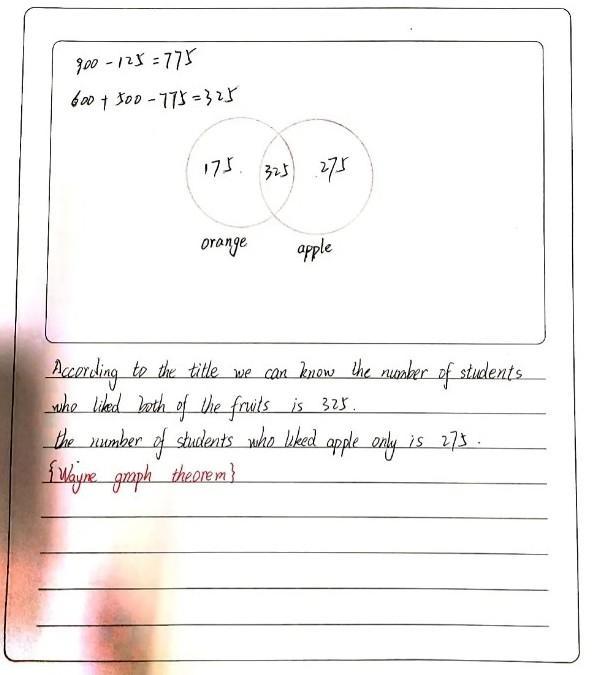 900 - 125 = 775
600 + 500 - 775 = 325
175. 325 .275
orange apple
According to the title we can know the number of students
who liked both of the fruits is 325.
the number of students who liked apple only is 275.
{Wayne graph theorem}